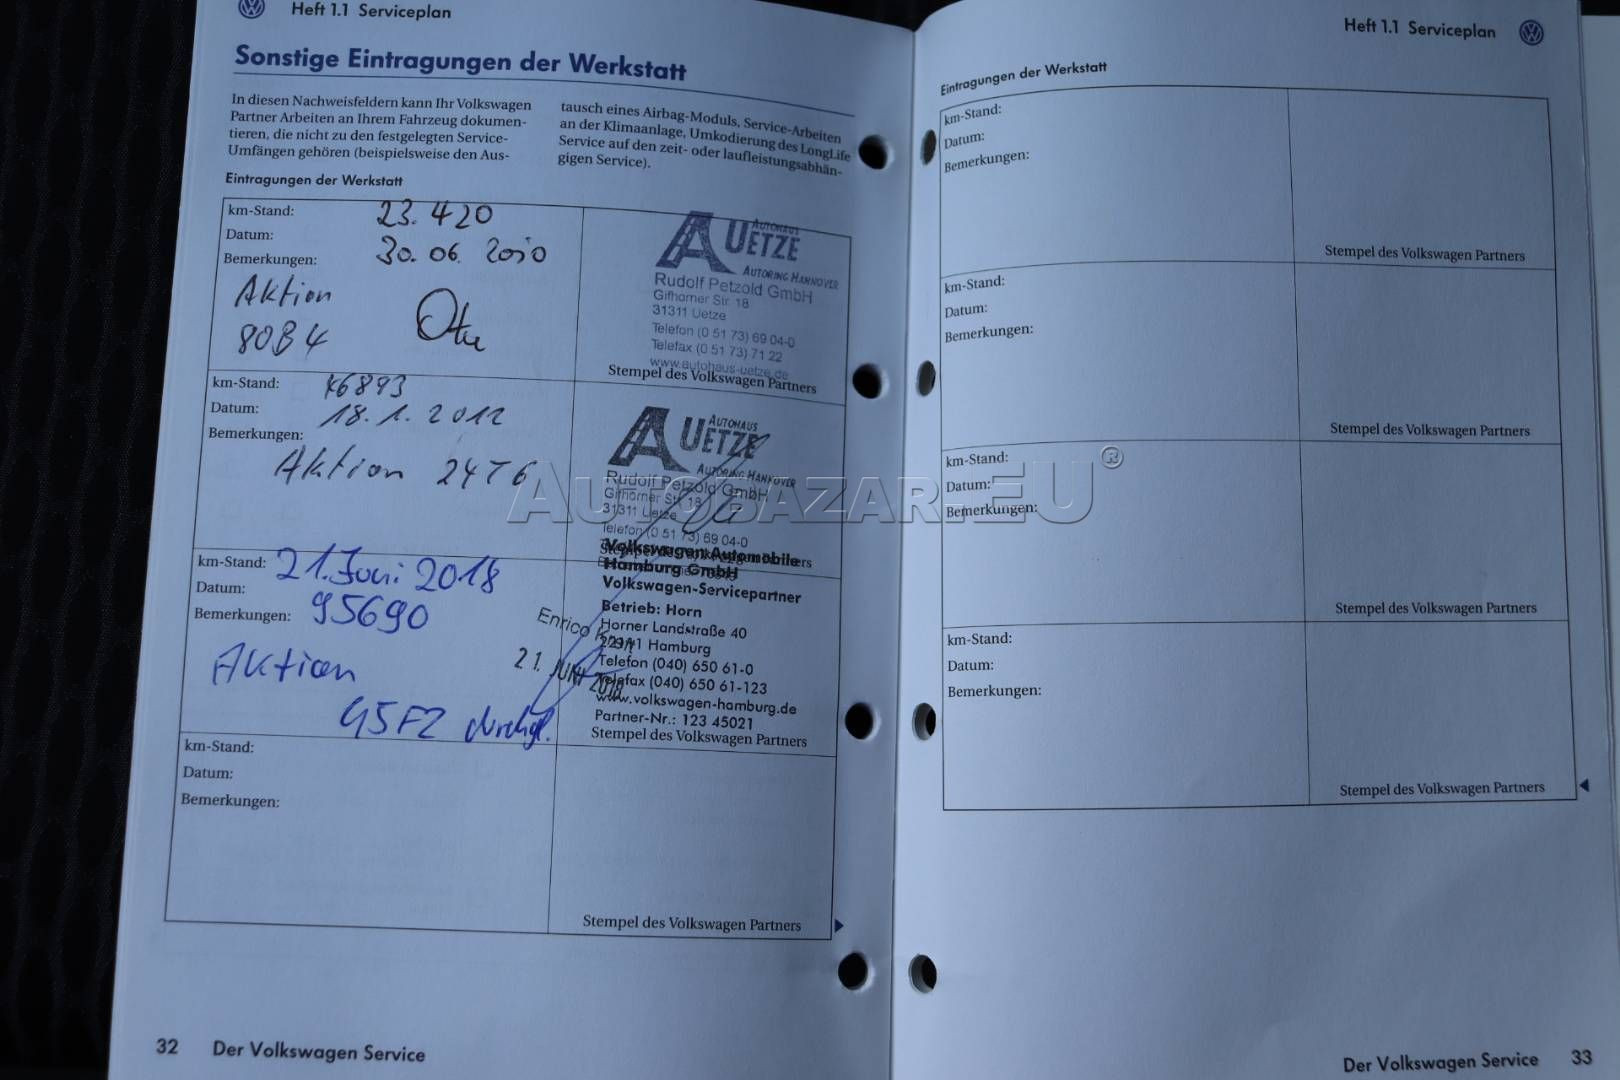 Heft 1.1 Serviceplan
Sonstige Eintragungen der Werkstatt
In diesen Nachweisfeldern kann Ihr Volkswagen
Partner Arbeiten an Ihrem Fahrzeug dokumen-
tieren, die nicht zu den festgelegten Service-
Umfängen gehören (beispielsweise den Aus-
tausch eines Airbag-Moduls, Service-Arbeiten
an der Klimaanlage, Umkodierung des LongLife
Service auf den zeit- oder laufleistungsabhän-
gigen Service).
Eintragungen der Werkstatt
km-Stand: 23.420
Datum: 30.06.2010
Bemerkungen:
Aktion
80B4
AUTOHAUS
UETZE
AUTORING HANNOVER
Rudolf Petzold GmbH
Gifhorner Str. 18
31311 Uetze
Telefon (0 51 73) 69 04-0
Telefax (0 51 73) 71 22
www.autohaus-uetze.de
Stempel des Volkswagen Partners
km-Stand: 46893
Datum: 18.1.2012
Bemerkungen:
Aktion 24T6
AUTOHAUS
UETZE
AUTORING HANNOVER
Rudolf Petzold GmbH
Gifhorner Str. 18
31311 Uetze
Telefon (0 51 73) 69 04-0
km-Stand: 21. Juni 2018
Datum:
Bemerkungen: 95690
Aktion
45F2 durchgf.
Volkswagen Automobile
Hamburg GmbH
Volkswagen-Servicepartner
Betrieb: Horn
Horner Landstraße 40
22111 Hamburg
Telefon (040) 650 61-0
Telefax (040) 650 61-123
www.volkswagen-hamburg.de
Partner-Nr.: 123 45021
Enrico
21. JUNI 2018
Stempel des Volkswagen Partners
km-Stand:
Datum:
Bemerkungen:
Stempel des Volkswagen Partners
32 Der Volkswagen Service
Heft 1.1 Serviceplan
Eintragungen der Werkstatt
km-Stand:
Datum:
Bemerkungen:
Stempel des Volkswagen Partners
km-Stand:
Datum:
Bemerkungen:
Stempel des Volkswagen Partners
km-Stand:
Datum:
Bemerkungen:
Stempel des Volkswagen Partners
km-Stand:
Datum:
Bemerkungen:
Stempel des Volkswagen Partners
Der Volkswagen Service 33
AUTOBAZAR.EU®